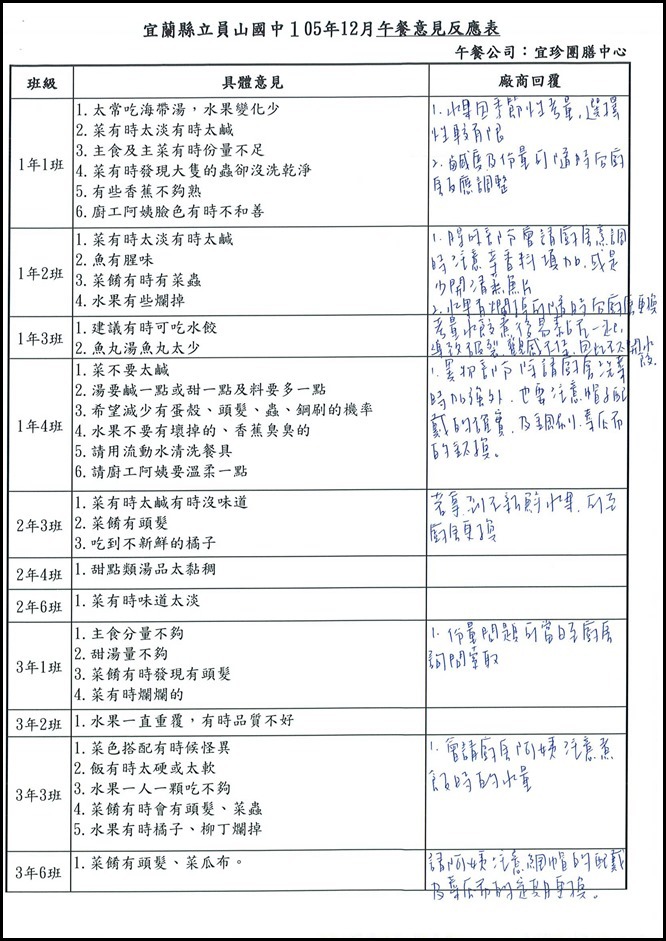 宜蘭縣立員山國中105年12月午餐意見反應表
午餐公司：宜珍團膳中心
班級 具體意見 廠商回覆
1年1班
1.太常吃海帶湯，水果變化少
2.菜有時太淡有時太鹹
3.主食及主菜有時份量不足
4.菜有時發現大隻的蟲卻沒洗乾淨
5.有些香蕉不夠熟
6.廚工阿姨臉色有時不和善
1.水果因季節性考量，選擇
性較有限
2.鹹度及份量可隨時向廚
房反應調整
1年2班
1.菜有時太淡有時太鹹
2.魚有腥味
3.菜餚有時有菜蟲
4.水果有些爛掉
1.腥味部份會請廚房烹調
時注意辛香料添加,或是
少開清蒸魚片
2.水果有爛掉可隨時向廚房更換
1年3班
1.建議有時可吃水餃
2.魚丸湯魚丸太少
考量水餃蒸後易黏在一起,
導致破裂,觀感不佳,因此不開水餃
1年4班
1.菜不要太鹹
2.湯要鹹一點或甜一點及料要多一點
3.希望減少有蛋殼、頭髮、蟲、鋼刷的機率
4.水果不要有壞掉的、香蕉臭臭的
5.請用流動水清洗餐具
6.請廚工阿姨要溫柔一點
1.異物部份除請廚房洗菜
時加強外,也要注意帽子配
戴的確實,及鋼刷、菜瓜布
的汰換。
2年3班
1.菜有時太鹹有時沒味道
2.菜餚有頭髮
3.吃到不新鮮的橘子
若拿到不新鮮水果,可至
廚房更換
2年4班
1.甜點類湯品太黏稠
2年6班
1.菜有時味道太淡
3年1班
1.主食分量不夠
2.甜湯量不夠
3.菜餚有時發現有頭髮
4.菜有時爛爛的
1.份量問題可當日至廚房
詢問索取
3年2班
1.水果一直重覆，有時品質不好
3年3班
1.菜色搭配有時候怪異
2.飯有時太硬或太軟
3.水果一人一顆吃不夠
4.菜餚有時會有頭髮、菜蟲
5.水果有時橘子、柳丁爛掉
1.會請廚房阿姨注意煮
飯時的水量
3年6班
1.菜餚有頭髮、菜瓜布。
請阿姨注意網帽的配戴
及菜瓜布的定期更換。